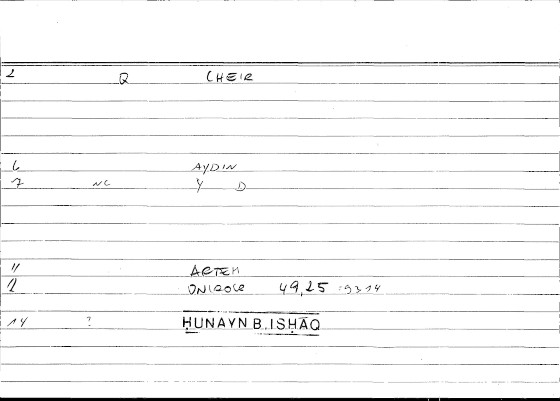 2 Q CHEIR
6 AYDIN
7 NC Y D
11 ARTEM
12 ONIROCR 49,25 :9314
14 ? ḤUNAYN B. ISḤĀQ